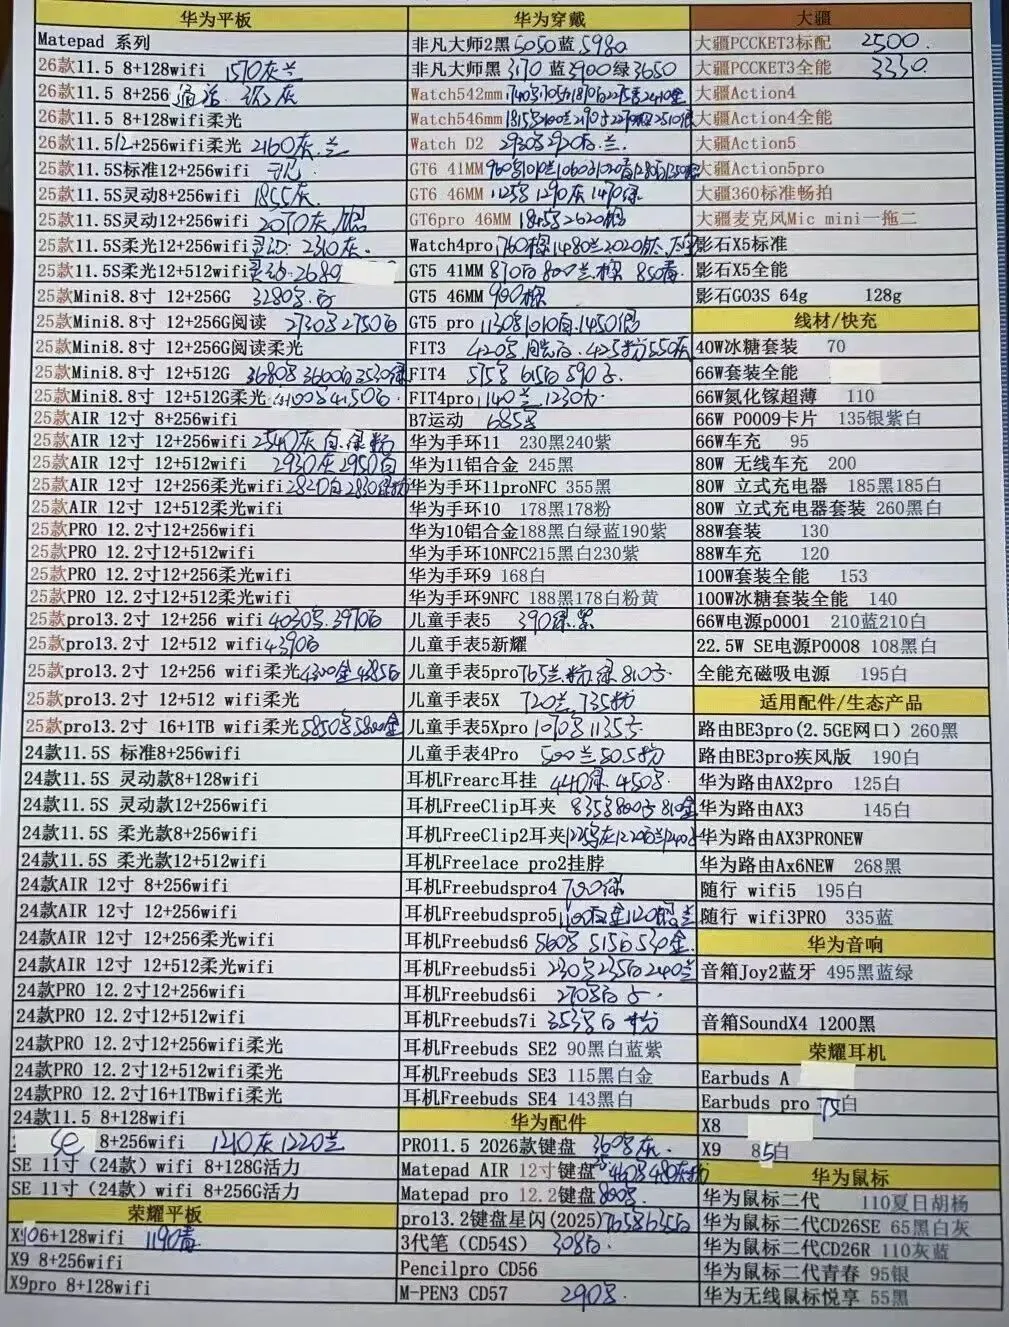 华为平板
Matepad 系列
26款11.5 8+128wifi 1570灰兰
26款11.5 8+256 灰
26款11.5 8+128wifi柔光
26款11.512+256wifi柔光 2160灰.兰
25款11.5S标准12+256wifi
25款11.5S灵动8+256wifi 1855灰
25款11.5S灵动12+256wifi 2070灰
25款11.5S柔光12+256wifi 2310灰.
25款11.5S柔光12+512wifi 2680
25款Mini8.8寸 12+256G 3280黑.白
25款Mini8.8寸 12+256G阅读 2730黑2750白
25款Mini8.8寸 12+256G阅读柔光
25款Mini8.8寸 12+512G 3680黑3600白3530绿
25款Mini8.8寸 12+512G柔光 4100黑4150白
25款AIR 12寸 8+256wifi
25款AIR 12寸 12+256wifi 2540灰白.绿粉
25款AIR 12寸 12+512wifi 2930灰2950白
25款AIR 12寸 12+256柔光wifi 2820白2830绿粉
25款AIR 12寸 12+512柔光wifi
25款PRO 12.2寸12+256wifi
25款PRO 12.2寸12+512wifi
25款PRO 12.2寸12+256柔光wifi
25款PRO 12.2寸12+512柔光wifi
25款pro13.2寸 12+256 wifi 4030黑.3970白
25款pro13.2寸 12+512 wifi 4390白
25款pro13.2寸 12+256 wifi柔光 4300金4385白
25款pro13.2寸 12+512 wifi柔光
25款pro13.2寸 16+1TB wifi柔光 5850黑5800金
24款11.5S 标准8+256wifi
24款11.5S 灵动款8+128wifi
24款11.5S 灵动款12+256wifi
24款11.5S 柔光款8+256wifi
24款11.5S 柔光款12+512wifi
24款AIR 12寸 8+256wifi
24款AIR 12寸 12+256wifi
24款AIR 12寸 12+256柔光wifi
24款AIR 12寸 12+512柔光wifi
24款PRO 12.2寸12+256wifi
24款PRO 12.2寸12+512wifi
24款PRO 12.2寸12+256wifi柔光
24款PRO 12.2寸12+512wifi柔光
24款PRO 12.2寸16+1TBwifi柔光
24款11.5 8+128wifi
SE 8+256wifi 1210灰1220兰
SE 11寸（24款）wifi 8+128G活力
SE 11寸（24款）wifi 8+256G活力
荣耀平板
X106+128wifi 1190青
X9 8+256wifi
X9pro 8+128wifi
华为穿戴
非凡大师2黑5050蓝5980
非凡大师黑3170 蓝3900绿3650
Watch542mm
Watch546mm
Watch D2 2930黑2920灰.兰.
GT6 41MM
GT6 46MM 1125黑1290灰1470绿
GT6pro 46MM 1845黑2620
Watch4pro 1760棕1480兰2020钛
GT5 41MM 870白800兰.棕 850青
GT5 46MM 900棕
GT5 pro 1130黑1010白.1450
FIT3 420黑 白.425粉550灰
FIT4 575黑 615白590紫.
FIT4pro 1140兰 1230
B7运动 685黑
华为手环11 230黑240紫
华为11铝合金 245黑
华为手环11proNFC 355黑
华为手环10 178黑178粉
华为10铝合金188黑白绿蓝190紫
华为手环10NFC215黑白230紫
华为手环9 168白
华为手环9NFC 188黑178白粉黄
儿童手表5 390绿.紫
儿童手表5新耀
儿童手表5pro 765兰.粉.绿 810紫.
儿童手表5X 720兰 735粉
儿童手表5Xpro 1070黑1135紫
儿童手表4Pro 500兰505粉
耳机Frearc耳挂 440绿 450黑.
耳机FreeClip耳夹 835黑800紫810金
耳机FreeClip2耳夹
耳机Freelace pro2挂脖
耳机Freebudspro4 700绿
耳机Freebudspro5 1100白金1120 兰
耳机Freebuds6 560黑 515白530金
耳机Freebuds5i 230黑235白240兰
耳机Freebuds6i 270黑白紫.
耳机Freebuds7i 353黑白粉
耳机Freebuds SE2 90黑白蓝紫
耳机Freebuds SE3 115黑白金
耳机Freebuds SE4 143黑白
华为配件
PRO11.5 2026款键盘 360黑灰.
Matepad AIR 12寸键盘 440黑480灰粉
Matepad pro 12.2键盘 800黑.
pro13.2键盘星闪(2025)765黑635白
3代笔（CD54S） 308白.
Pencilpro CD56
M-PEN3 CD57 290黑.
大疆
大疆PCCKET3标配 2500.
大疆PCCKET3全能 3330.
大疆Action4
大疆Action4全能
大疆Action5
大疆Action5pro
大疆360标准畅拍
大疆麦克风Mic mini一拖二
影石X5标准
影石X5全能
影石GO3S 64g 128g
线材/快充
40W冰糖套装 70
66W套装全能
66W氮化镓超薄 110
66W P0009卡片 135银紫白
66W车充 95
80W 无线车充 200
80W 立式充电器 185黑185白
80W 立式充电器套装 260黑白
88W套装 130
88W车充 120
100W套装全能 153
100W冰糖套装全能 140
66W电源p0001 210蓝210白
22.5W SE电源P0008 108黑白
全能充磁吸电源 195白
适用配件/生态产品
路由BE3pro(2.5GE网口) 260黑
路由BE3pro疾风版 190白
华为路由AX2pro 125白
华为路由AX3 145白
华为路由AX3PRONEW
华为路由Ax6NEW 268黑
随行 wifi5 195白
随行 wifi3PRO 335蓝
华为音响
音箱Joy2蓝牙 495黑蓝绿
音箱SoundX4 1200黑
荣耀耳机
Earbuds A
Earbuds pro 75白
X8
X9 85白
华为鼠标
华为鼠标二代 110夏日胡杨
华为鼠标二代CD26SE 65黑白灰
华为鼠标二代CD26R 110灰蓝
华为鼠标二代青春 95银
华为无线鼠标悦享 55黑